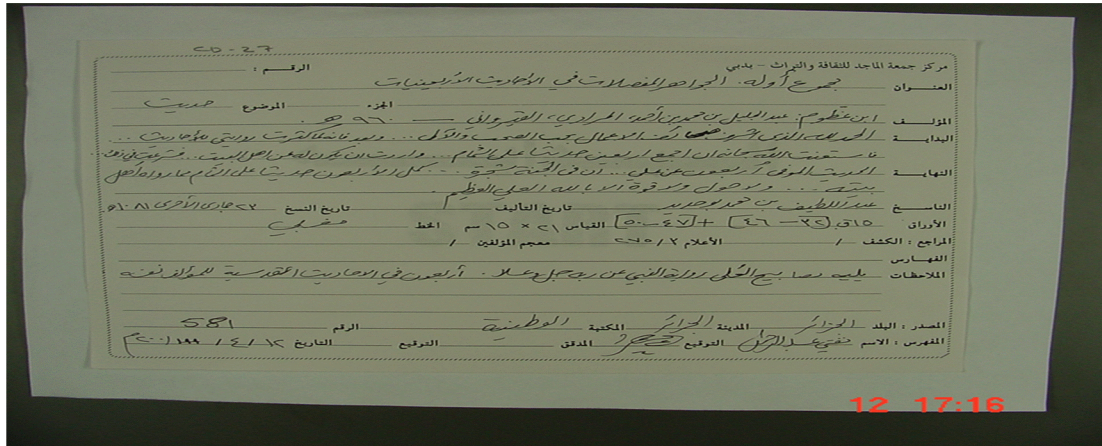 CD - 27
مركز جمعة الماجد للثقافة والتراث - بدبي الرقم :
العنوان مجموع أوله: الجواهر المفصلات في الأحاديث الأربعينيات
المؤلف ابن عظوم: عبد الجليل بن محمد بن أحمد المرادي، القيرواني ـ ٩٦٠ هـ الجزء الموضوع حديث
البداية الحمد لله الذي ... وبعد فانه لما كثرت روايتي للأحاديث ...
فاستعنت الله سبحانه ان اجمع اربعين حديثا على التمام ... واردت ان يكون له عن اهل البيت ...
النهاية الحديث الموفي أربعون عن علي ... ان في الجنة شجرة ... كمل الأربعون حديثا على التمام مما رواه أهل
بيته ... ولا حول ولا قوة الا بالله العلي العظيم.
الناسخ عبد اللطيف بن محمد بوحديد تاريخ التأليف تاريخ النسخ ٢٣ جمادى الأخرى ١٠٨١ هـ
الأوراق ١٥ق [٣٢ - ٤٦] + [٤٧ - ٥٠] القياس ٢١ × ١٥ سم الخط مغربي
المراجع : الكشف / الأعلام ٢٧٥/٣ معجم المؤلفين /
الفهارس
الملاحظات يليه مصابيح رواية النبي عن ربه جل وعلا. أربعون في الاحاديث القدسية للمؤلف نفسه
المصدر : البلد الجزائر المدينة الجزائر المكتبة الوطنية الرقم 581
المفهرس : الاسم التوقيع المدقق التوقيع التاريخ ١٢ / ٤ / ٢٠٠١م
12 17:16